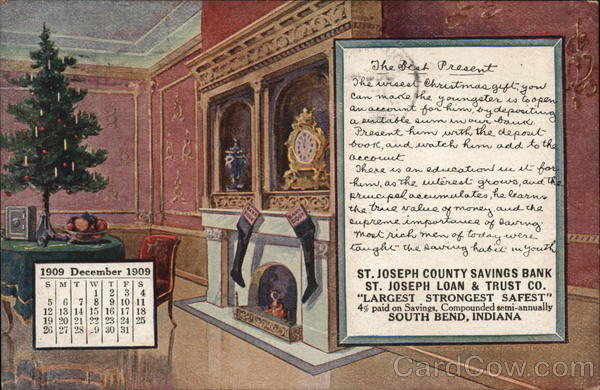 The Best Present
The wisest Christmas gift, you
can made the youngster is to open
an account for him, by depositing
a suitable sum in our bank
Present him with the deposit
book, and watch him add to the
account
There is an education in it for
him, as the interest grows, and the
principal accumulates, he learns
the true value of money, and the
supreme importance of saving
Most rich men of today were
taught the saving habit in youth
ST. JOSEPH COUNTY SAVINGS BANK
ST. JOSEPH LOAN & TRUST CO.
"LARGEST STRONGEST SAFEST"
4% paid on Savings, Compounded semi-annually
SOUTH BEND, INDIANA
1909 December 1909
S M T W T F S
1 2 3 4
5 6 7 8 9 10 11
12 13 14 15 16 17 18
19 20 21 22 23 24 25
26 27 28 29 30 31
CardCow.com